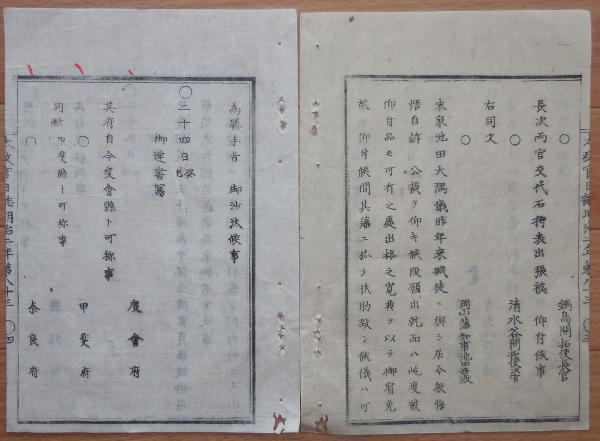 鍋島開拓使長官
長次両官交代石狩表出張被　仰付候事
清水谷開拓使次官
右同文
岡山藩知事池田章政
末家池田大隅儀昨年来賊徒ニ與シ居今般悔
悟自訴　公裁ヲ仰キ候段願出就而ハ屹度被
仰付品モ可有之處出格之寛典ヲ以テ御宥免
被　仰付候間其藩ニ於テ扶助致シ候儀ハ可
太政官日誌明治二年第八十三
為勝手旨　御沙汰候事
二十四日癸巳
御達書寫
度會府
其府自今度會縣ト可称事
甲斐府
同断甲斐縣ト可称事
奈良府
太政官日誌明治二年第八十三　四